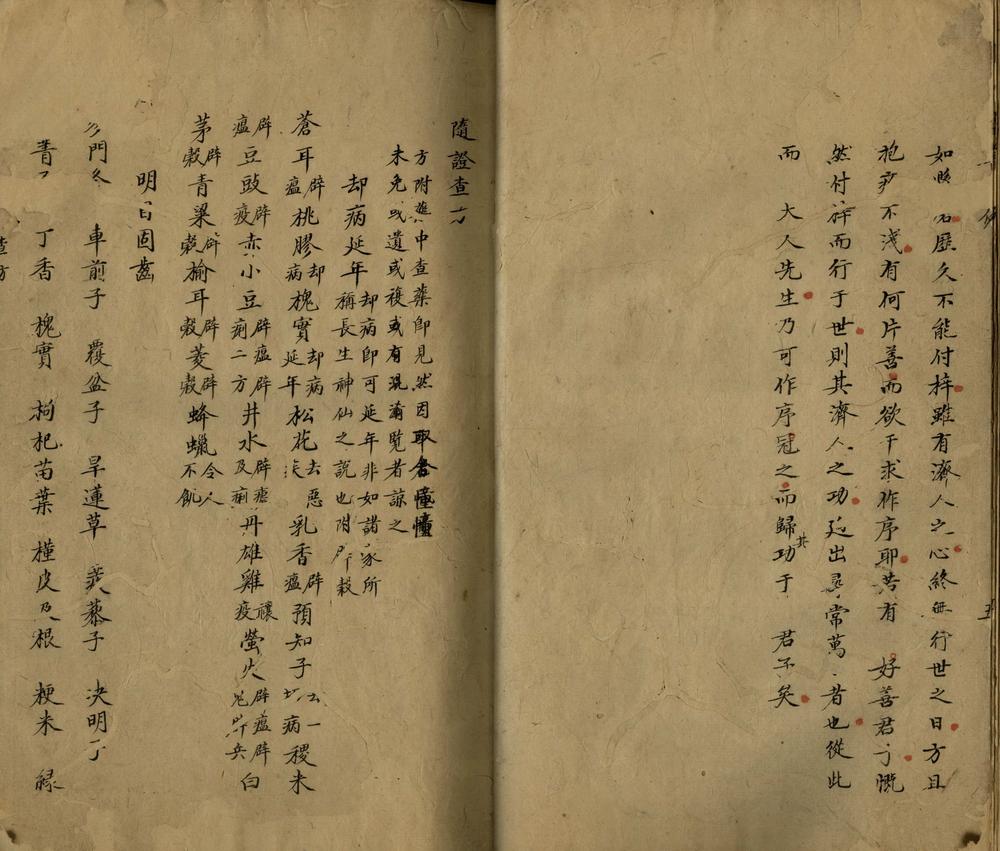 如 名歷久不能付梓雖有濟人之心終無行世之日方且
抱歉不淺有何片善而欲干求作序耶若有 好善君子慨
然付梓而行于世則其濟人之功迥出尋常萬 者也從此
而 大人先生乃可作序冠之而歸其功于 君子矣
隨證查方
方附 中查藥即見然因取
未免或遺或複或有混淆覽者諒之
却病延年 却病即可延年非如諸家所
稱長生神仙之說也附 穀
蒼耳辟瘟桃膠却病槐實却病延年松花去惡 乳香辟瘟預知子去一切病稷米
辟瘟豆豉辟疫赤小豆辟瘟辟痢二方井水辟瘧及痢丹雄雞禳疫螢火辟瘟辟 兵白
茅辟穀青粱辟穀榆耳辟穀菱辟穀蜂蠟令人不飢
明目固齒
門冬 車前子 覆盆子 旱蓮草 蒺藜子 決明子
丁香 槐實 枸杞苗葉 槿皮及根 粳米 綠